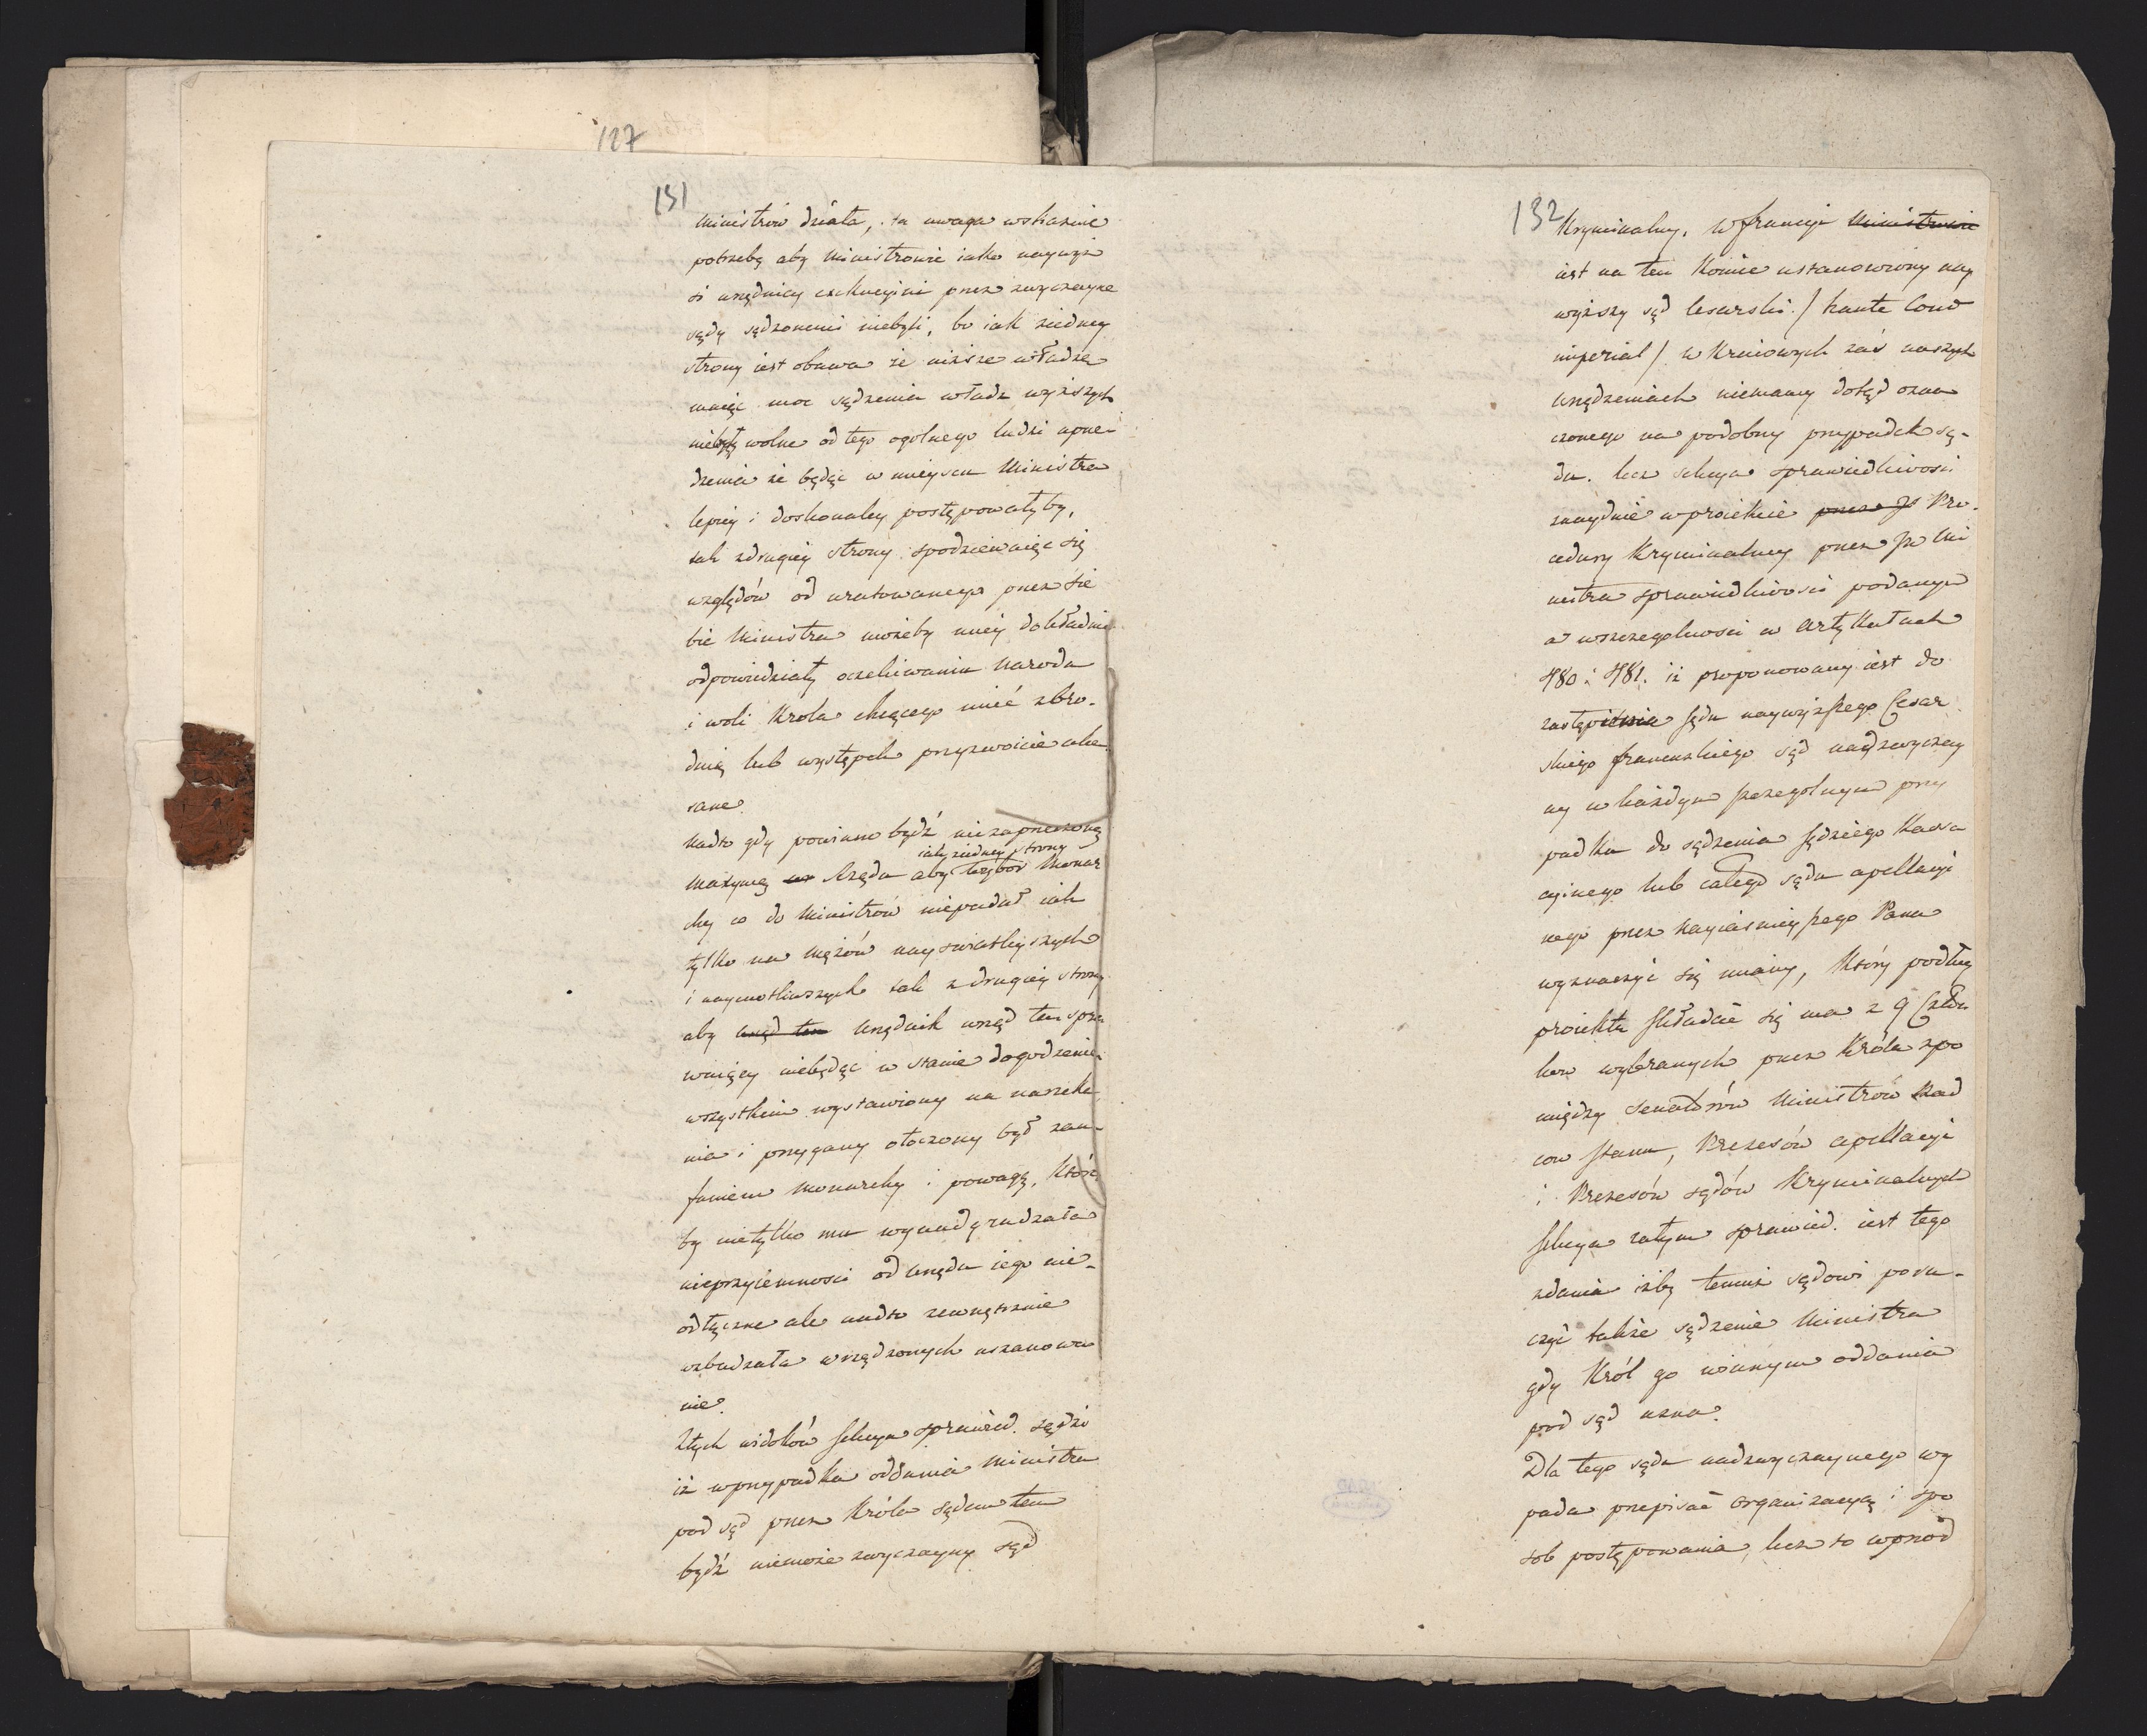 127
131
Ministrów działa, ta uwaga wskazuie
potrzebę aby Ministrowie iako naywyż
si urzędnicy exekucyini przez zwyczayne
sądy sądzonemi niebyli, bo iak ziedney
strony iest obawa że niższe władze
maiąc moc sądzenia władz wyższych
niebyły wolne od tego ogolnego ludzi uprze-
dzenia że będąc w mieyscu Ministra
lepiey i doskonaley postępowałyby,
tak zdrugiey strony spodziewaiąc się
względów od uratowanego przez sie
bie Ministra możeby mniey dokładnie
odpowiedziały oczekiwaniu Narodu
i woli Krola chcącego mieć zbro-
dnię lub występek przyzwoicie uka-
rane.
Nadto gdy powinno bydź niezaprzeczoną
iak z iedney strony
maxymą Rządu aby wybór Monar
chy co do Ministrów niepadał iak
tylko na mężów nayswiatleyszych
i naycnotliwszych tak z drugiey strony
aby urząd ten Urzędnik urząd ten spra
wuiący niebędąc w stanie dogodzenia
wszystkim wystawiony na narzeka
nia i przygany otoczony był zau-
faniem Monarchy i powagą, która
by nietylko mu wynadgradzała
nieprzyiemności od urzędu iego nie-
odłączne ale nadto zewnętrznie
wzbudzała w rządzonych uszanowa
nie.
Ztych widoków Sekcya sprawied. sądzi
iż wprzypadku oddania Ministra
pod sąd przez Króla sądem tem
bydź niemoże zwyczayny sąd
132
Kryminalny. W francyi Ministrowie
iest na ten koniec ustanowiony nay
wyższy sąd Cesarski / haute Cour
imperial / w Kraiowych zaś naszych
urządzeniach niemamy dotąd ozna
czonego na podobny przypadek są-
du. lecz Sekcya sprawiedliwości
znayduie w proiekcie przez JW Pro-
cedury Kryminalney przez JW Mi
nistra sprawiedliwości podanym
a wszczegolności w Artykułach
480 i 481. iż proponowany iest do
zastąpienia Sądu naywyższego Cesar
skiego francuzkiego sąd nadzwyczay
ny w każdym szczególnym przy
padku do sądzenia Sędziego Kassa
cyinego lub całego sądu apellacyi
nego przez Nayiaśnieyszego Pana
wyznaczyć się maiący, który podług
proiektu składać się ma z 9 Człon
kow wybranych przez Króla zpo
między Senatorów Ministrów Rad
cow Stanu, Prezesów apellacyi
i Prezesów sądów Kryminalnych
Sekcya zatym sprawied. iest tego
zdania iżby temuż sądowi poru-
czyć także sądzenie Ministra
gdy Król go winnym oddania
pod sąd uzna.
Dla tego sądu nadzwyczaynego wy
pada przepisać organizacyą i spo
sob postępowania, lecz to wprzód